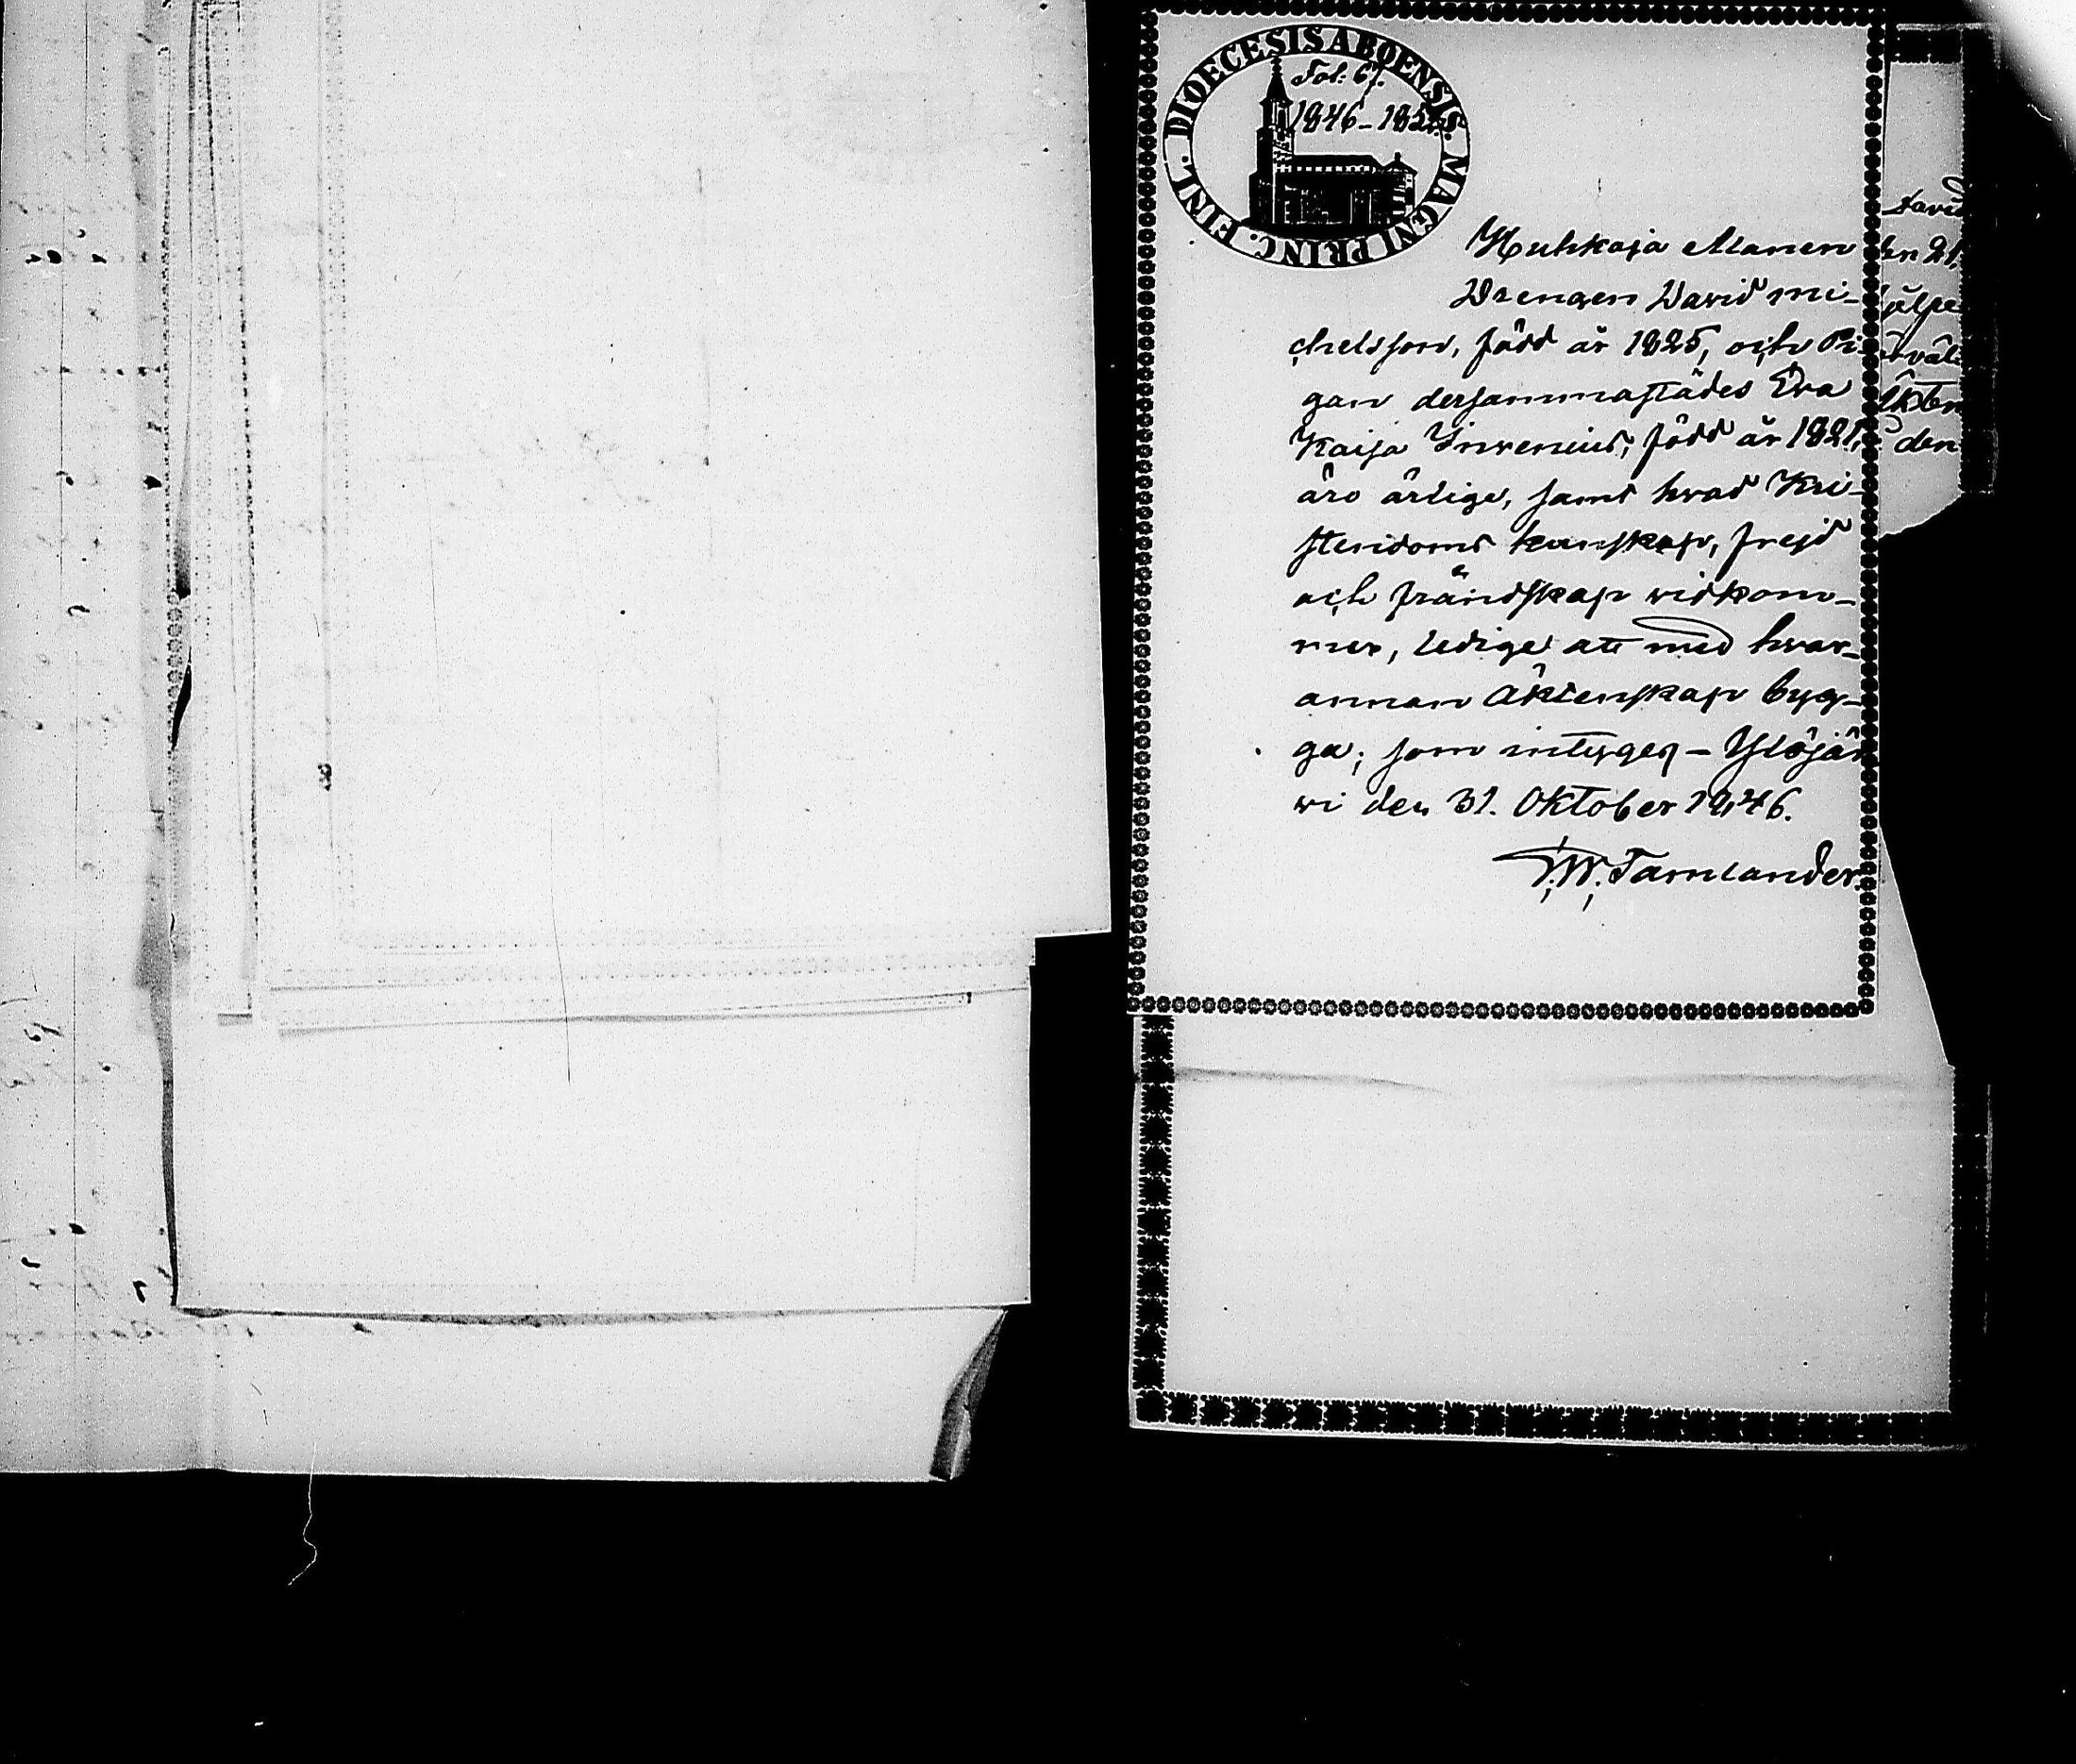 DIOECESIS ABOENSIS. MAGNI PRINC. FINL.
Fol: 67.
1846-185
Kuhkoja Alanen
Drengen David Mi-
chelsson, född år 1825, och Pi-
gan dersammastädes Eva
Kaisa Inrenius, född år 1821,
äro ärlige, samt hvad Kri-
stendoms kunskap, frejd
och frändskap vidkom-
mer, ledige att med hvar-
annan Äktenskap byg-
ga; som intygeg - Ylöjär
vi den 31. Oktober 1846.
F. W. Tamlander.
David
en 21.
jelpe
Ekten
den